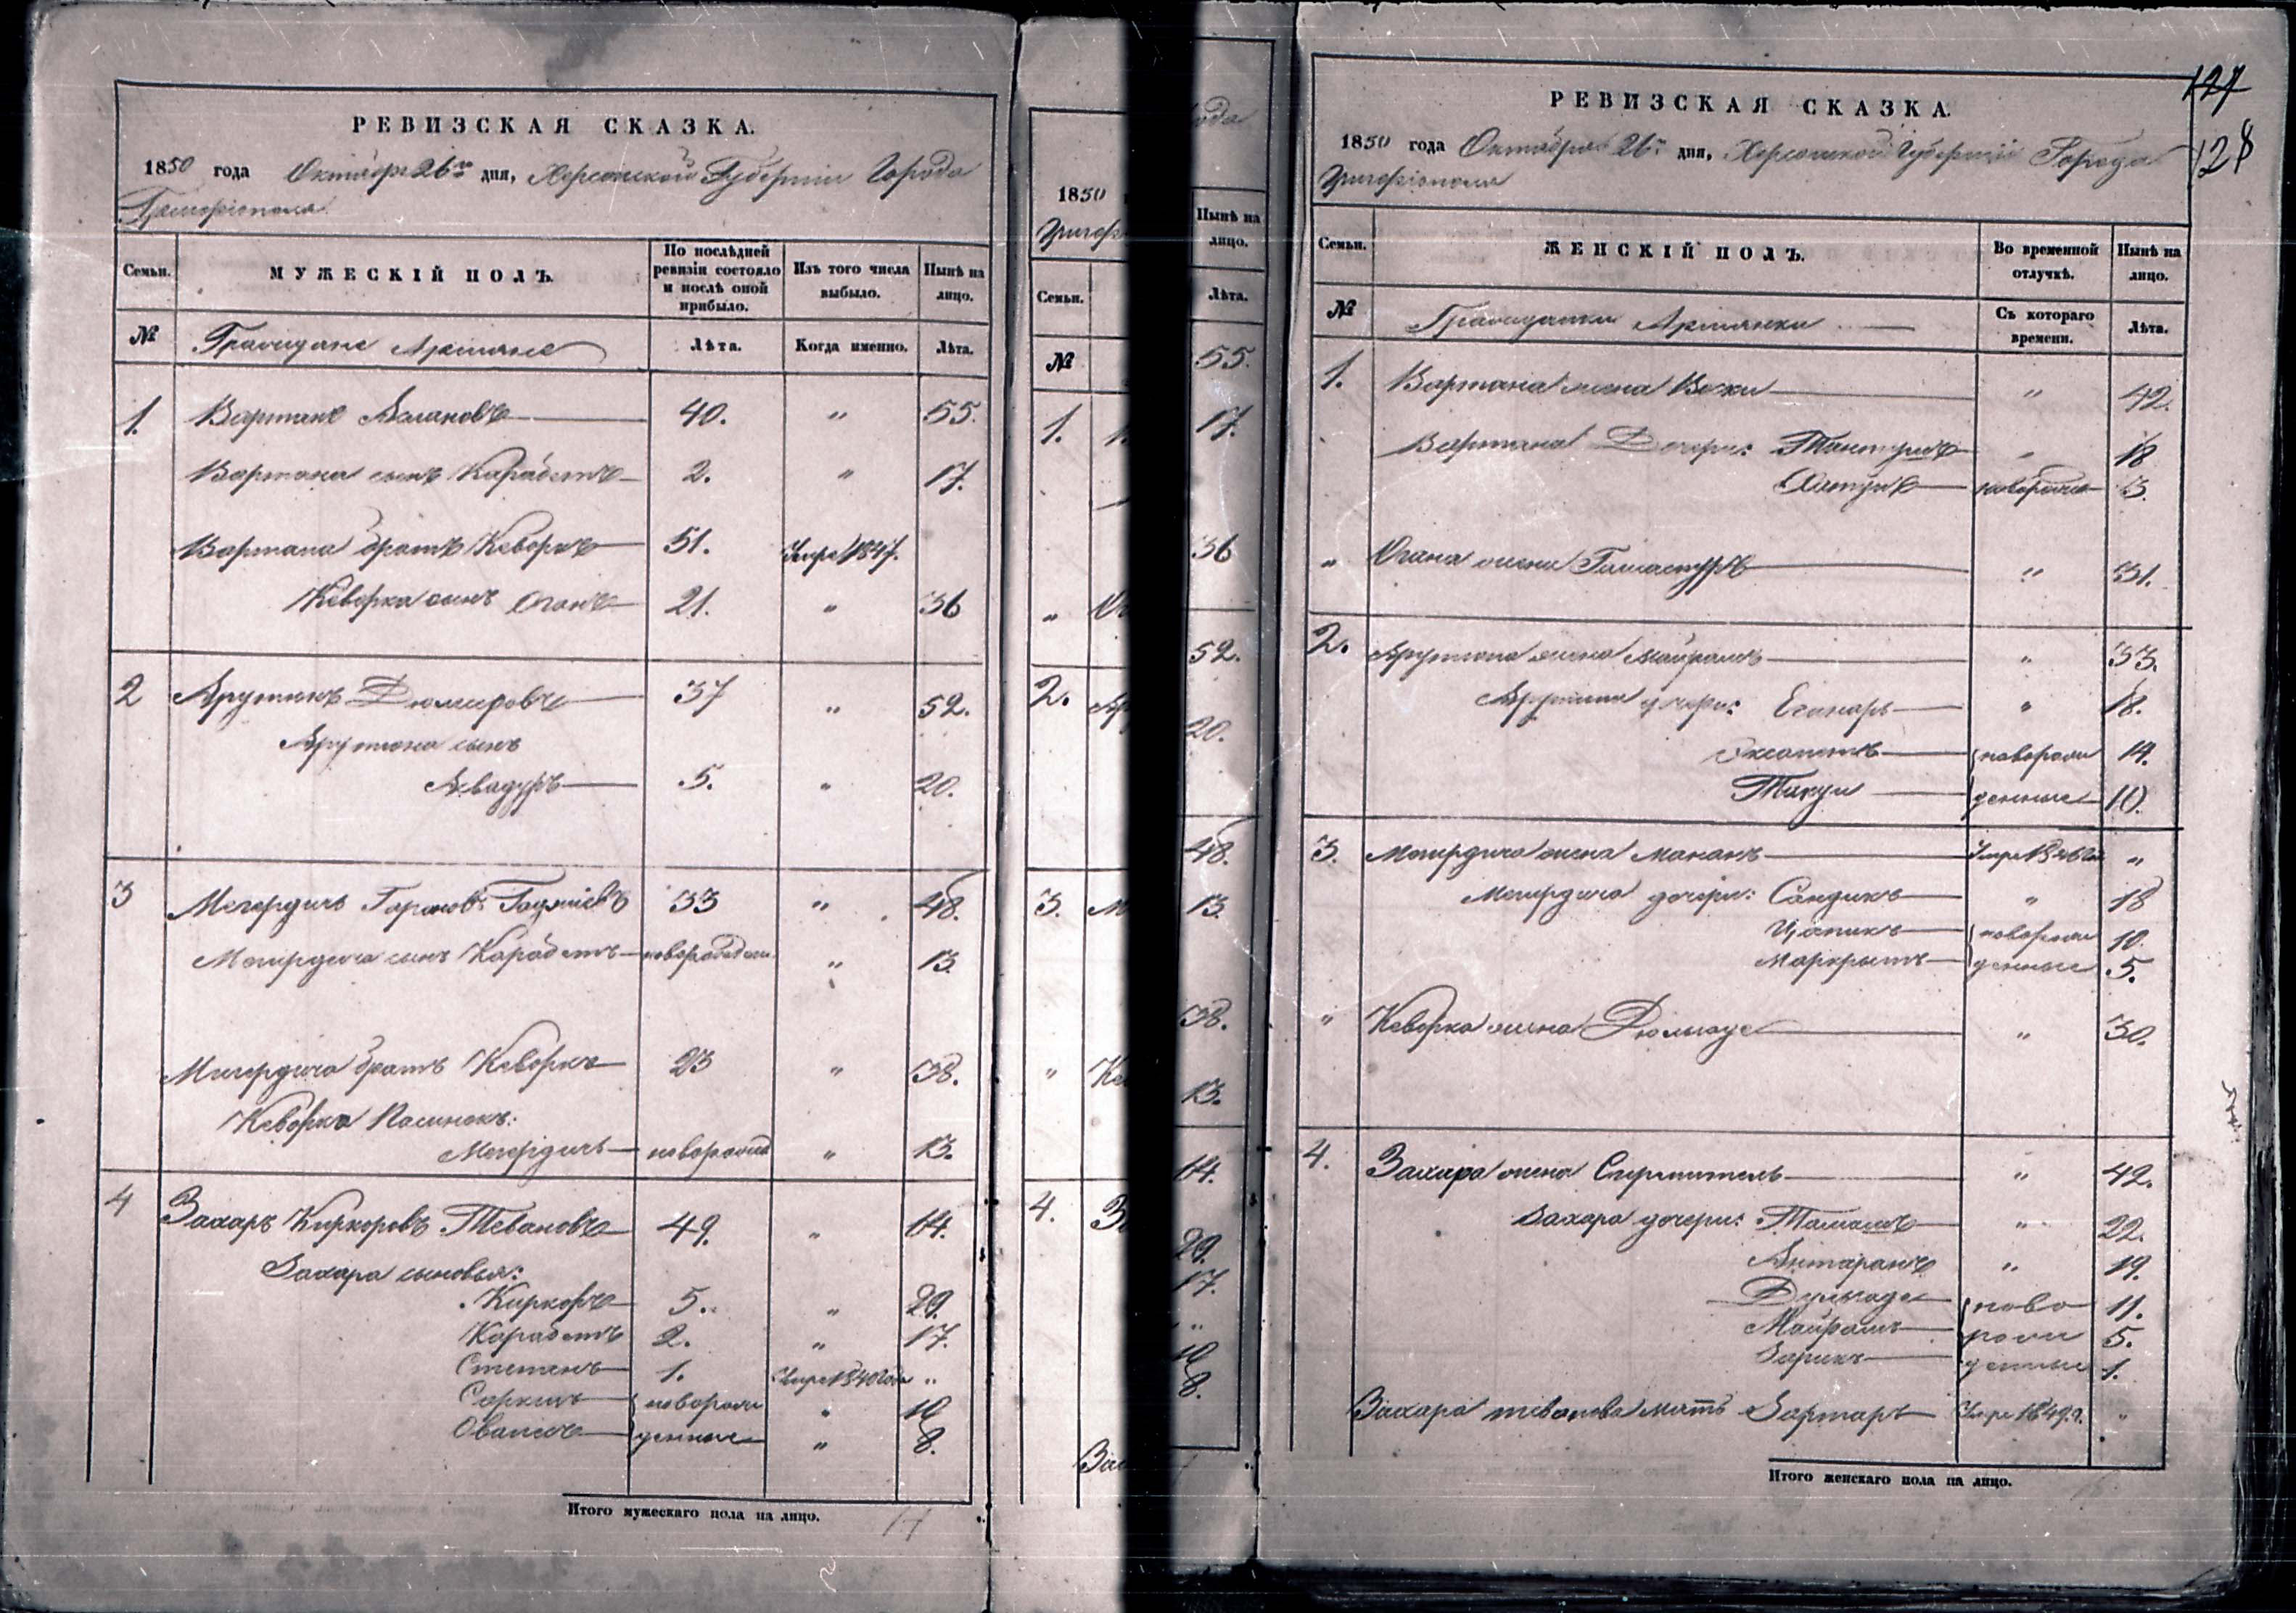 РЕВИЗСКАЯ СКАЗКА.
1850 года Октября 26го дня, Херсонской Губернии Города
Григоріополя
Семьи. МУЖЕСКІЙ ПОЛЪ. По послѣдней ревизіи состояло и послѣ оной прибыло. Изъ того числа выбыло. Нынѣ на лицо.
№ Граждане Армяне Лѣта. Когда именно. Лѣта.
1. Вартанъ Аслановъ 40. " 55.
Вартана сынъ Карабетъ 2. " 17.
Вартана братъ Кеворкъ 51. Умре 1847.
Кеворка сынъ Оганъ 21. " 36
2 Арутюнъ Дюлгеровъ 37 " 52.
Арутюна сынъ
Асвадуръ 5. " 20.
3 Мегердичъ 33 " 48.
Мегердича сынъ Карабетъ новорожден " 13.
Мегердича братъ Кеворкъ 23 " 38.
Кеворка Пасынокъ:
Мегердичъ новорожд " 13.
4 Захаръ Киркоровъ Тевановъ 49. " 14.
Захара сыновья:
Киркоръ 5. " 29.
Карабетъ 2. " 17.
Степанъ 1. Умре 1840 года "
Саркисъ новорож "
Ованесъ денные " 8.
Итого мужескаго пола на лицо.
1850
Семьи.
№
1.
"
2.
3. М
" Ке
4. З
Зах
ода
Нынѣ на лицо.
Лѣта.
55.
17.
36
52.
20.
48.
13.
38.
13.
14.
29.
17.
"
8.
127
128
РЕВИЗСКАЯ СКАЗКА.
1850 года Октября 26го дня, Херсонской Губерніи Города
Григоріополя
Семьи. ЖЕНСКІЙ ПОЛЪ. Во временной отлучкѣ. Нынѣ на лицо.
№ Гражданки Армянки Съ котораго времени. Лѣта.
1. Вартана жена " 42.
Вартана Дочери: " 18
новорожд 3.
" Огана жена " 31.
2. Арутюна жена Майрамъ " 33.
Арутюна дочери: " 18.
новорож 14.
Такуи денные 10.
3. Мегердича жена Мананъ Умре 1846 "
Мегердича дочери: Сандухъ " 18
новорож 10.
Маркрытъ денные 5.
" Кеворка жена " 30.
4. Захара жена " 42.
Захара дочери: " 22.
Антарамъ " 19.
ново 11.
Майрамъ рож 5.
Зарикъ денные 1.
Захара теванова мать Зартаръ Умре 1849 г. "
Итого женскаго пола на лицо.